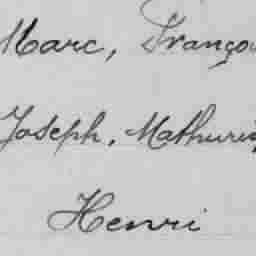 Marc, Françoi
Joseph, Mathurin
Henri